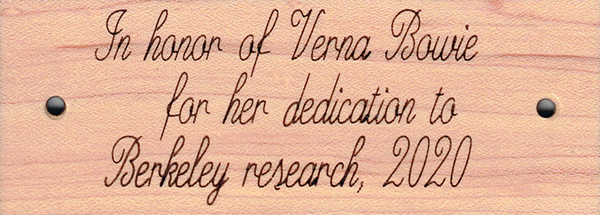 In honor of Verna Bowie
for her dedication to
Berkeley research, 2020